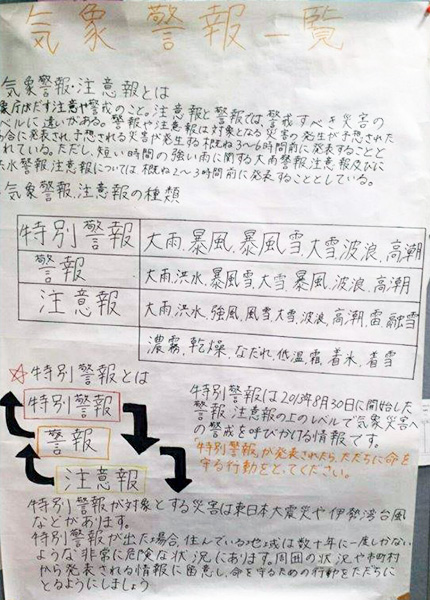 気象警報一覧
気象警報・注意報とは
象庁がだす注意や警戒のこと。注意報と警報では、警戒すべき災害の
ベルに違いがある。警報や注意報は対象となる災害の発生が予想された
合に発表され予想される災害が発生する概ね3～6時間前に発表することと
れている。ただし、短い時間の強い雨に関する大雨警報、注意報及びに
水警報、注意報については概ね2～3時間前に発表することとしている。
気象警報、注意報の種類
特別警報 大雨、暴風、暴風雪、大雪、波浪、高潮
警報 大雨、洪水、暴風雪、大雪、暴風、波浪、高潮
注意報 大雨、洪水、強風、風雪、大雪、波浪、高潮、雷、融雪
濃霧、乾燥、なだれ、低温、霜、着氷、着雪
☆特別警報とは
特別警報
警報
注意報
特別警報は2013年8月30日に開始した
警報、注意報の上のレベルで気象災害への
警戒を呼びかける情報です。
特別警報が発表されたら、ただちに命を
守る行動をとってください。
特別警報が対象とする災害は東日本大震災や伊勢湾台風
などがあります。
特別警報が出た場合、住んでいる地域は数十年に一度しかない
ような非常に危険な状況にあります。周囲の状況や市町村
から発表される情報に留意し、命を守るための行動をただちに
とるようにしましょう